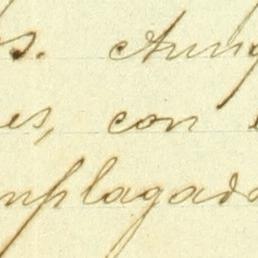 s. Aunq
es, con
nplagada